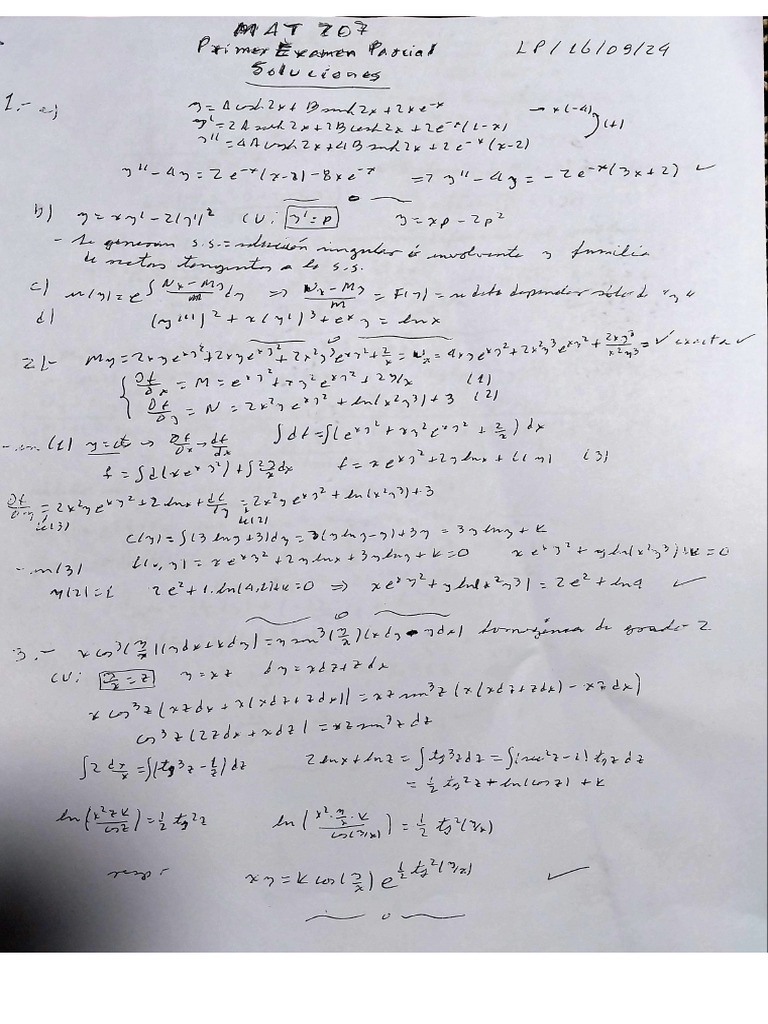 MAT 207
Primer Examen Parcial LP/16/09/24
Soluciones
1.- a) y=Acosh2x+Bsenh2x+2xe^-x → x(-4)
y'=2Asenh2x+2Bcosh2x+2e^-x(1-x) (+)
y''=4Acosh2x+4Bsenh2x+2e^-x(x-2)
y''-4y=2e^-x(x-2)-8xe^-x => y''-4y=-2e^-x(3x+2) ✓
b) y=xy'-2(y')² CV: y'=p y=xp-2p²
- Se generan s.s.=solución singular o involvente y familia
de rectas tangentes a la s.s.
c) u(y)=e^∫(Nx-My)/M dy => (Nx-My)/M = F(y) = debe depender sólo de "y"
d) (y''')²+x(y')³+e^x y=lnx
2.- My=2xye^xy²+2xye^xy²+2x²y³e^xy²+2/x = Nx=4xye^xy²+2x²y³e^xy²+2xy³/x²y³ = ✓ exacta ✓
∂f/∂x=M=e^xy²+xy²e^xy²+2y/x (1)
∂f/∂y=N=2x²ye^xy²+ln(x²y³)+3 (2)
-.en (1) y=cte → ∂f/∂x→df/dx ∫df=∫(e^xy²+xy²e^xy²+2y/x)dx
f=∫d(xe^xy²)+∫2y/x dx f=xe^xy²+2ylnx+C(y) (3)
∂f/∂y=2x²ye^xy²+2lnx+dC/dy=2x²ye^xy²+ln(x²y³)+3
de(3) de(2)
C(y)=∫(3lny+3)dy=3(ylny-y)+3y=3ylny+K
-.en(3) f(x,y)=xe^xy²+2ylnx+3ylny+K=0 xe^xy²+yln(x²y³)+K=0
y(2)=1 2e²+1.ln(4.1)+K=0 => xe^xy²+yln(x²y³)=2e²+ln4 ✓
3.- xcos³(y/x)(ydx+xdy)=ysen³(y/x)(xdy-ydx) homogénea de grado 2
CV: y/x=z y=xz dy=xdz+zdx
xcos³z(xzdx+x(xdz+zdx))=xzsen³z(x(xdz+zdx)-xzdx)
cos³z(2zdx+xdz)=xzsen³zdz
∫2dx/x=∫(tg³z-1/z)dz 2lnx+lnz=∫tg³zdz=∫(sec²z-1)tgzdz
=½tg²z+ln(cosz)+K
ln(x²zK/cosz)=½tg²z ln(x²·y/x·K/cos(y/x))=½tg²(y/x)
resp.- xy=Kcos(y/x)e^½tg²(y/x) ✓